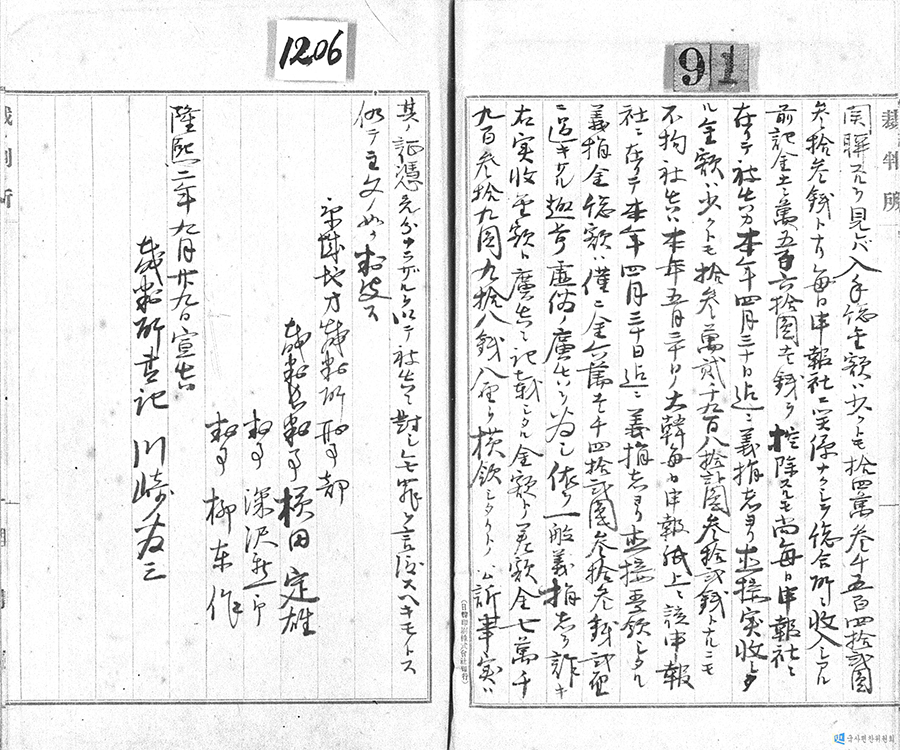 1206
91
裁判所
関聯スルヲ見レバ入手総金額ハ少クトモ拾四萬参千五百四拾弐圓
参拾参銭トナリ毎日申報社ニ関係ナクシテ総合所ニ収入シタル
前記金壱萬五百六拾圓壱銭ヲ控除スルモ尚毎日申報社ニ
在リテ被告カ本年四月三十日迄ニ義捐者ヨリ直接実収シタ
ル金額ハ少クトモ拾参萬弐千九百八拾弐圓参拾弐銭トナルニモ
不拘被告ハ本年五月三十日ノ大韓毎日申報紙上ニ該申報
社ニ在リテ本年四月三十日迄ニ義捐者ヨリ直接受領シタル
義捐金総額ハ僅ニ金六萬壱千四拾弐圓参拾参銭弐厘
ニ過キサル趣旨虚偽ノ廣告ヲ為シ依テ一般義捐者ヲ詐キ
右実収金額ト廣告ニ記載シタル金額トノ差額金七萬千
九百参拾九圓九拾八銭八厘ヲ横領シタリトノ公訴事実ハ
其ノ証憑充分ナラザルヲ以テ被告ニ對シ無罪ヲ言渡スヘキモノトス
仍テ主文ノ如ク判決ス
京城地方裁判所刑事部
裁判長判事 横田定雄
判事 深沢新一郎
判事 柳東作
隆熙二年九月廿九日宣告
裁判所書記 川崎為三
裁判所
국사편찬위원회